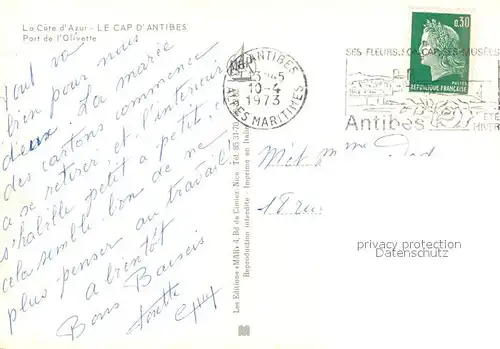 La Côte d'Azur - LE CAP D'ANTIBES
Port de l'Olivette
Tout va
bien pour nous
deux. La marée
des cartons commence
a se retirer et l'interieur
s'habille petit a petit, et
cela semble bon de ne
plus penser au travail
a bientôt
Bons Baisers
Les Editions «MAR» 4, Bd de Cimiez, Nice - Tél. 85 31-70
Reproduction interdite - Imprimé en Italie
ANTIBES
10-4
1973
ALPES MARITIMES
SES FLEURS SON CAP SES MUSÉES
Antibes
ETE
HIVER
0,30
POSTES
REPUBLIQUE FRANÇAISE
18 rue
privacy protection
Datenschutz